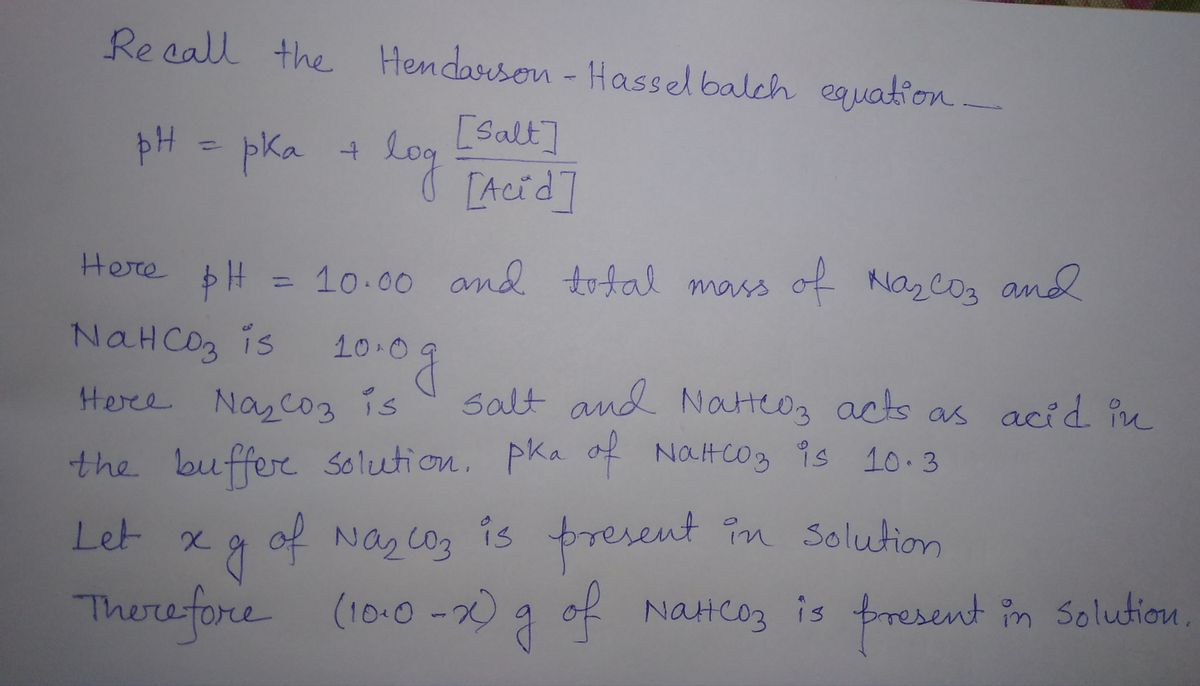 Recall the Hendarson - Hasselbalch equation —
pH = pKa + log [Salt] / [Acid]
Here pH = 10.00 and total mass of Na₂CO₃ and
NaHCO₃ is 10.0 g
Here Na₂CO₃ is salt and NaHCO₃ acts as acid in
the buffer solution. pKa of NaHCO₃ is 10.3
Let x g of Na₂CO₃ is present in solution
Therefore (10.0 - x) g of NaHCO₃ is present in solution.